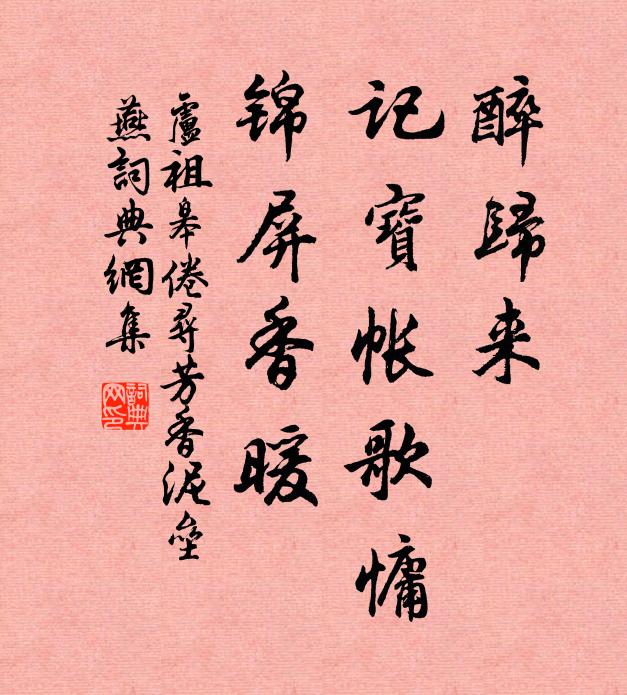 醉歸来
記寶帐歌慵
锦屏香暖
盧祖皋倦尋芳香泥壘
燕詞典網集
詞典网印